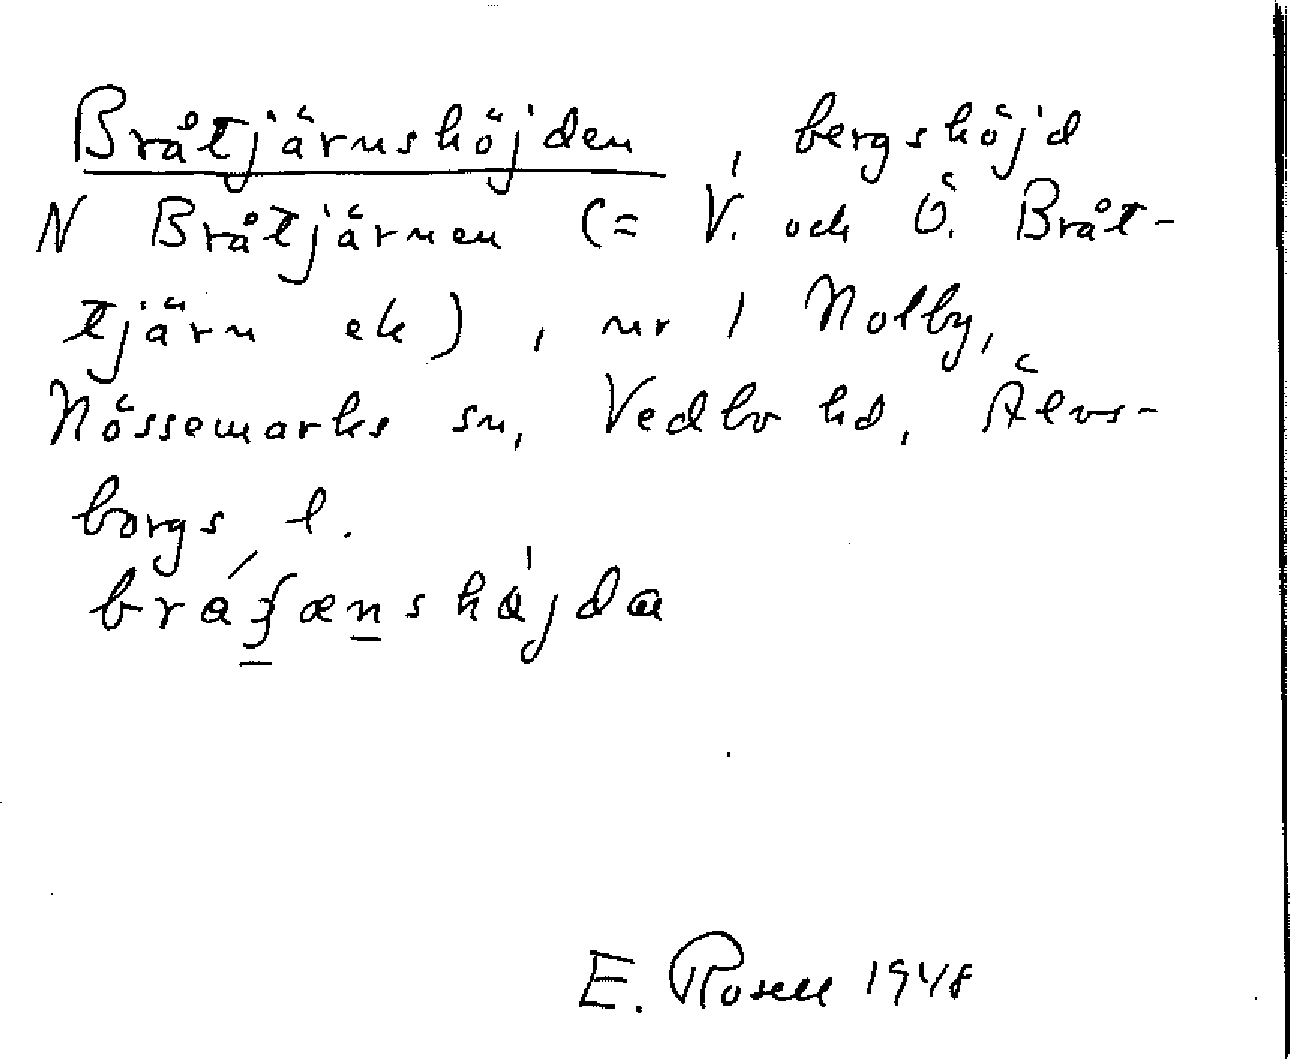 Bråtjärnshöjden, bergshöjd
N Bråtjärnen (= V. och Ö. Bråt-
tjärn ek), nr 1 Nolby,
Nössemarks sn, Vedbo hd, Älvs-
borgs l.
E. Rosell 1948